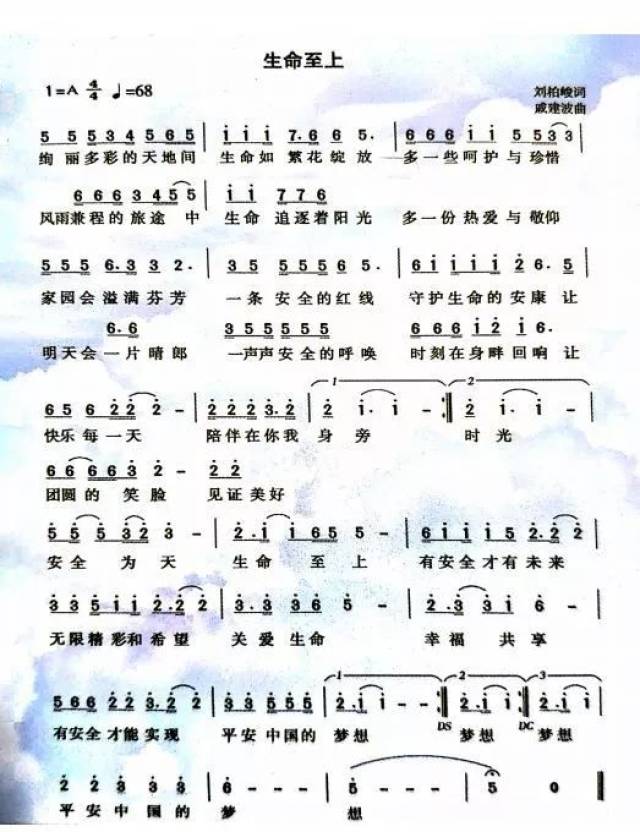 生命至上
1=A 4/4 ♩=68
刘柏峻词
戚建波曲
5 5 5 3 4 5 6 5 | i i i 7. 6 6 5 | 6 6 6 i i 5 5 3 3
绚丽多彩的天地间 生命如 繁花绽放 多一些呵护与珍惜
6 6 6 3 4 5 5 i i 7 7 6
风雨兼程的旅途 中 生命 追逐着阳光 多一份热爱与敬仰
5 5 5 6. 3 3 2 . | 3 5 5 5 5 5 3 . | 6 i i i i 2 6 . 5
家园会溢满芬芳 一条 安全的红线 守护生命的安康 让
6 . 6 3 5 5 5 5 5 6 6 6 i i i 6 .
明天会一片晴郎 一声声安全的呼唤 时刻在身畔回响 让
6 5 6 2 2 2 - | 2 2 2 2 3 . 2 | 2 i . i - :| 2 i . i -
快乐每一天 陪伴在你我 身 旁 时光
6 6 6 6 6 3 2 - 2 2
团圆的 笑脸 见证美好
5 5 5 3 2 3 - | 2 . i i 6 5 5 - | 6 i i i 5 3 2 . 2 2
安全 为 天 生命 至上 有安全才有未来
3 3 5 i i 2 . 2 2 | 3 3 3 6 5 - | 6 . 6 6 i 5 -
无限精彩和希望 关爱生命 幸福 共享
5 6 6 2 2 3 . 2 | 2 2 2 2 3 . | 2 i i - - - :| 2 i i - :| 2 i i -
DS DC
有安全才能实现 平安中国的 梦想 梦想 梦想
2 2 3 3 | 2 2 3 . | 6 - - - | 5 - - - | 5 5 0
平安中国的 梦 想